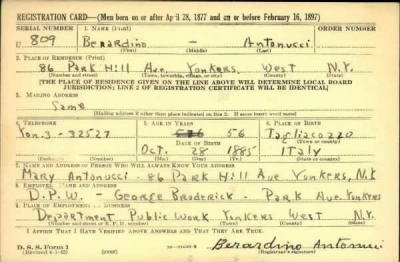 REGISTRATION CARD—(Men born on or after April 28, 1877 and on or before February 16, 1897)
SERIAL NUMBER 1. NAME (Print) ORDER NUMBER
U 809 Berardino — Antonucci
(First) (Middle) (Last)
2. PLACE OF RESIDENCE (Print)
86 Park Hill Ave. Yonkers, West N.Y.
(Number and street) (Town, township, village, or city) (County) (State)
[THE PLACE OF RESIDENCE GIVEN ON THE LINE ABOVE WILL DETERMINE LOCAL BOARD
JURISDICTION; LINE 2 OF REGISTRATION CERTIFICATE WILL BE IDENTICAL]
3. MAILING ADDRESS
Same
[Mailing address if other than place indicated on line 2. If same insert word same]
4. TELEPHONE 5. AGE IN YEARS 6. PLACE OF BIRTH
Yon. 3-32527 56 Tagliacozzo
DATE OF BIRTH (Town or county)
Oct. 28 1885 Italy
(Exchange) (Number) (Mo.) (Day) (Yr.) (State or country)
7. NAME AND ADDRESS OF PERSON WHO WILL ALWAYS KNOW YOUR ADDRESS
Mary Antonucci - 86 Park Hill Ave Yonkers, N.Y
8. EMPLOYER'S NAME AND ADDRESS
D.P.W. George Broderick - Park Ave. Yonkers
9. PLACE OF EMPLOYMENT OR BUSINESS
Department Public Work Yonkers West N.Y.
(Number and street or R. F. D. number) (Town) (County) (State)
I AFFIRM THAT I HAVE VERIFIED ABOVE ANSWERS AND THAT THEY ARE TRUE.
D. S. S. Form 1
(Revised 4-1-42) (over) Berardino Antonucci